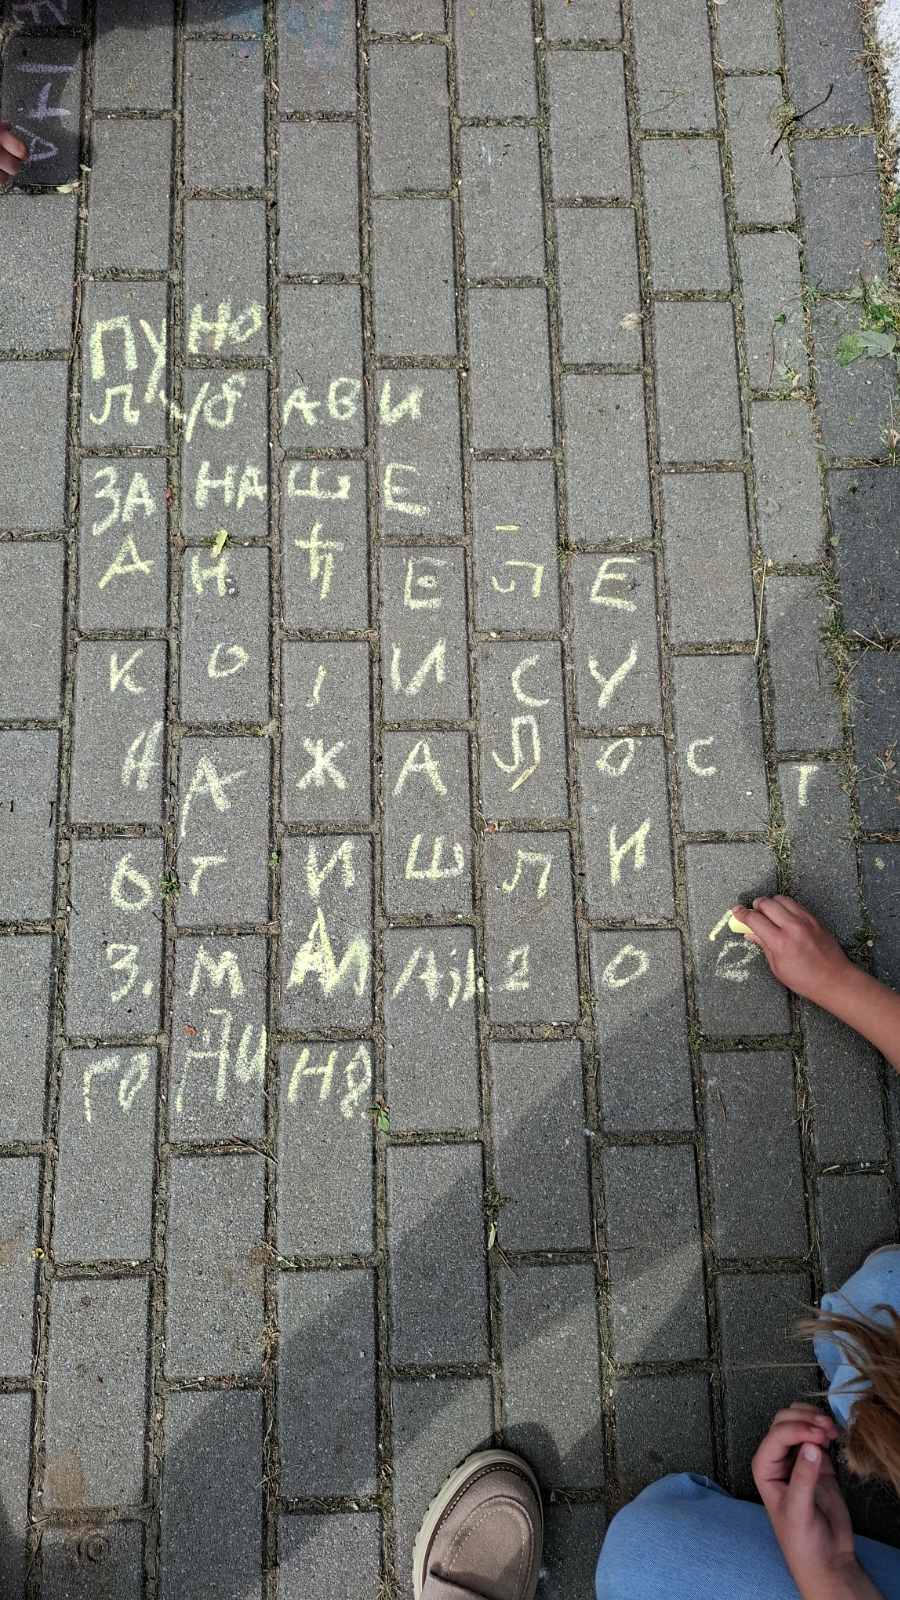 ПУНО
ЉУБАВИ
ЗА НАШЕ
АНЂЕЛЕ
КОЈИ СУ
НАЖАЛОСТ
ОТИШЛИ
3.
ГОДИНЕ